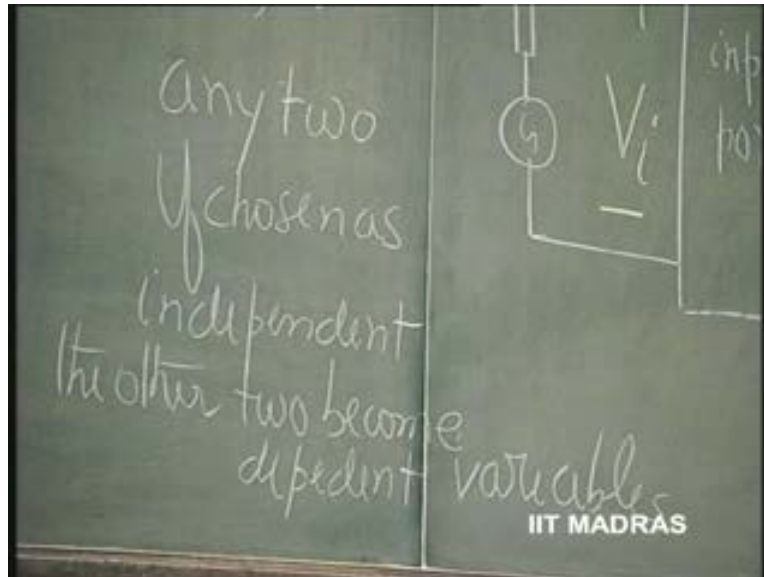 any two
If chosen as
independent
the other two become
depedent variables
Vi
inp
por
IIT MADRAS